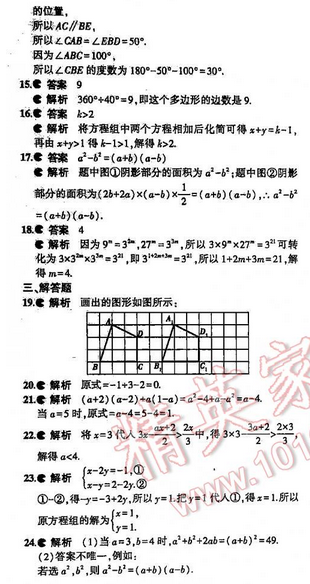 的位置,
所以AC∥BE,
所以∠CAB=∠EBD=50°.
因为∠ABC=100°,
所以∠CBE的度数为180°-50°-100°=30°.
15. 答案 9
解析 360°÷40°=9,即这个多边形的边数是9.
16. 答案 k>2
解析 将方程组中两个方程相加后化简可得x+y=k-1,
再由x+y>1得k-1>1,解得k>2.
17. 答案 a²-b²=(a+b)(a-b)
解析 题中图①阴影部分的面积为a²-b²;题中图②阴影
部分的面积为(2b+2a)×(a-b)×1/2=(a+b)(a-b),∴a²-b²
=(a+b)(a-b).
18. 答案 4
解析 因为9ᵐ=3²ᵐ,27ᵐ=3³ᵐ,所以3×9ᵐ×27ᵐ=3²¹可转
化为3×3²ᵐ×3³ᵐ=3²¹,即3¹⁺²ᵐ⁺³ᵐ=3²¹,所以1+2m+3m=21,解
得m=4.
三、解答题
19. 解析 画出的图形如图所示:
A A₁
D D₁
B C B₁ C₁
20. 解析 原式=-1+3-2=0.
21. 解析 (a+2)(a-2)+a(1-a)=a²-4+a-a²=a-4.
当a=5时,原式=a-4=5-4=1.
22. 解析 将x=3代入3x-(ax+2)/2>2x/3中,得3×3-(3a+2)/2>(2×3)/3,
解得a<4.
23. 解析 {x-2y=-1,①
x-y=2-2y.②
①-②,得-y=-3+2y,所以y=1.把y=1代入①,得x=1.所以
原方程组的解为{x=1,
y=1.
24. 解析 (1)当a=3,b=4时,a²+b²+2ab=(a+b)²=49.
(2)答案不唯一,例如:
若选a²,b²,则a²-b²=(a+b)(a-b).
精英家
www.1010